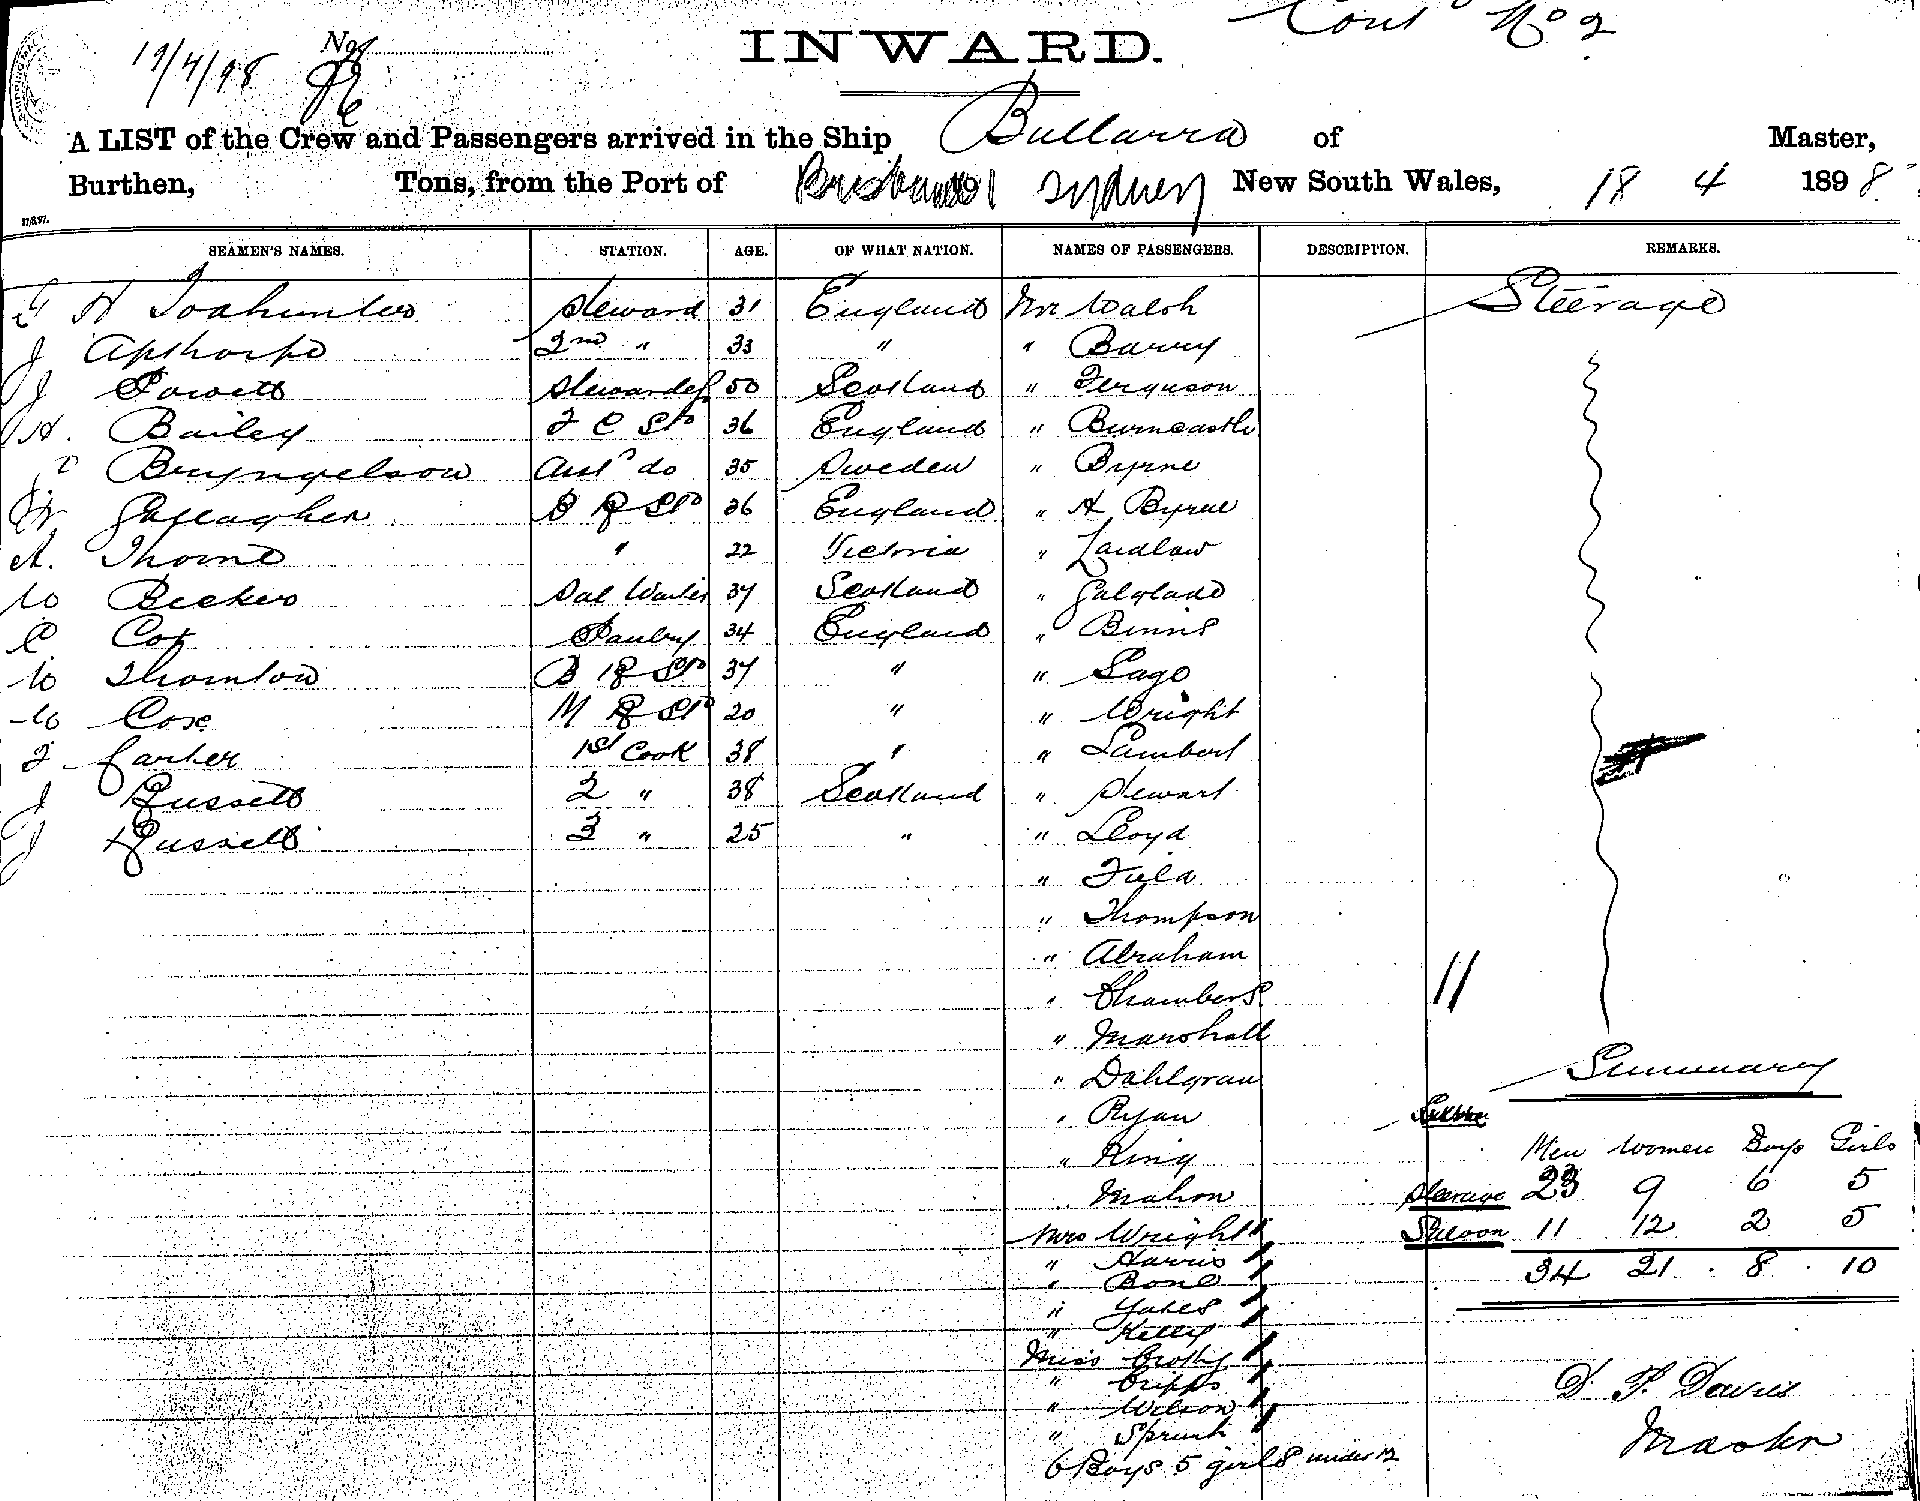 Cont No 2
19/4/98 No
INWARD.
A LIST of the Crew and Passengers arrived in the Ship Bullarra of Master,
Burthen, Tons, from the Port of Brisbane Sydney New South Wales, 18 4 1898
SEAMEN'S NAMES. STATION. AGE. OF WHAT NATION. NAMES OF PASSENGERS. DESCRIPTION. REMARKS.
Steward 31 England Mr Walsh Steerage
J Apthorpe 2nd " 33 " " Barry
J Powell Stewardess 50 Scotland " Ferguson
H. Bailey 2 C Std 36 England " Burncastle
Bryngelson Asst do 35 Sweden " Byrne
Gallagher B R Std 36 England " A Byrne
A. Thorne " 22 Victoria " Laidlaw
W Sal Waiter 37 Scotland " Galglade
C Cox Pantry 34 England " Binns
W Thornton B R Std 37 " " Sago
W Cox M R Std 20 " " Wright
J Carter 1st Cook 38 " " Lambert
J Russell 2 " 38 Scotland " Stewart
J Russell 3 " 25 " " Lloyd
" Field
" Thompson
" Abraham
" Chambers
" Marshall
" Dahlgran
" Ryan
" King
" Mahon
Mrs Wright
" Harris
" Bone
" Yates
" Kelly
Miss Crosby
" Cripps
" Wilson
" Sprunt
6 Boys 5 girls under 12
11
Summary
Men Women Boys Girls
Steerage 23 9 6 5
Saloon 11 12 2 5
34 21 . 8 . 10
D. P. Davies
Master